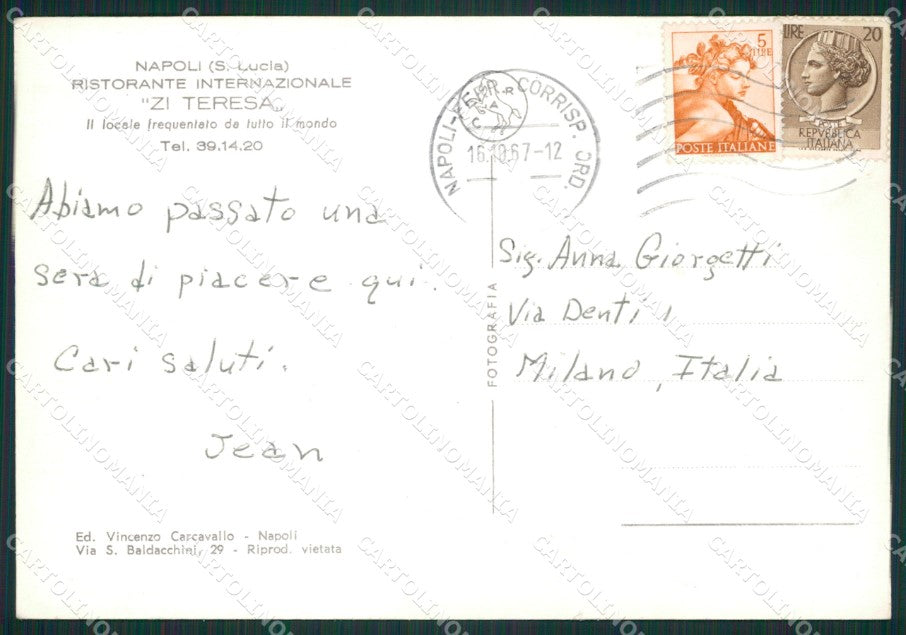 NAPOLI (S. Lucia)
RISTORANTE INTERNAZIONALE
"ZI TERESA"
Il locale frequentato da tutto il mondo
Tel. 39.14.20
Abiamo passato una
sera di piacere qui.
Cari saluti.
Jean
Ed. Vincenzo Carcavallo - Napoli
Via S. Baldacchini, 29 - Riprod. vietata
FOTOGRAFIA
NAPOLI-FERR. CORRISP. ORD.
67-12
5
LIRE
POSTE ITALIANE
LIRE 20
POSTE
REPVBBLICA
ITALIANA
Sig. Anna Giorgetti
Via Denti 1
Milano, Italia
CARTOLINOMANIA